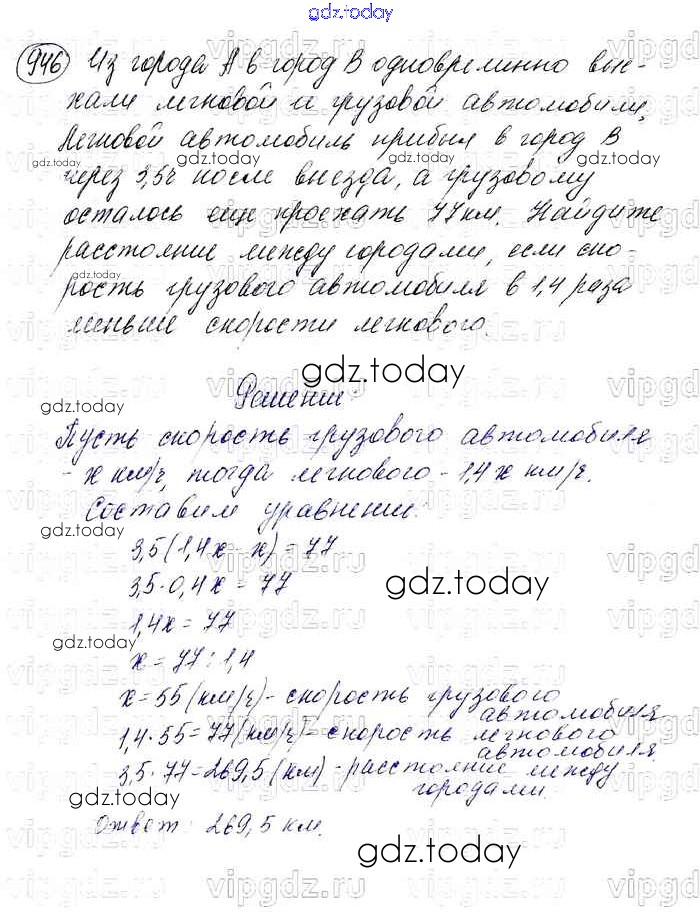 gdz.today
946 Из города А в город В одновременно вые-
хали легковой и грузовой автомобили.
Легковой автомобиль прибыл в город В
через 3,5ч после выезда, а грузовому
осталось еще проехать 77км. Найдите
расстояние между городами, если ско-
рость грузового автомобиля в 1,4 раза
меньше скорости легкового.
gdz.today
Решение:
Пусть скорость грузового автомобиля
- х км/ч, тогда легкового - 1,4х км/ч.
Составим уравнение:
3,5(1,4х - х) = 77
3,5·0,4х = 77
gdz.today
1,4х = 77
х = 77 : 1,4
х = 55 (км/ч) - скорость грузового
автомобиля
1,4·55 = 77 (км/ч) - скорость легкового
автомобиля
3,5·77 = 269,5 (км) - расстояние между
городами
Ответ: 269,5 км.
gdz.today